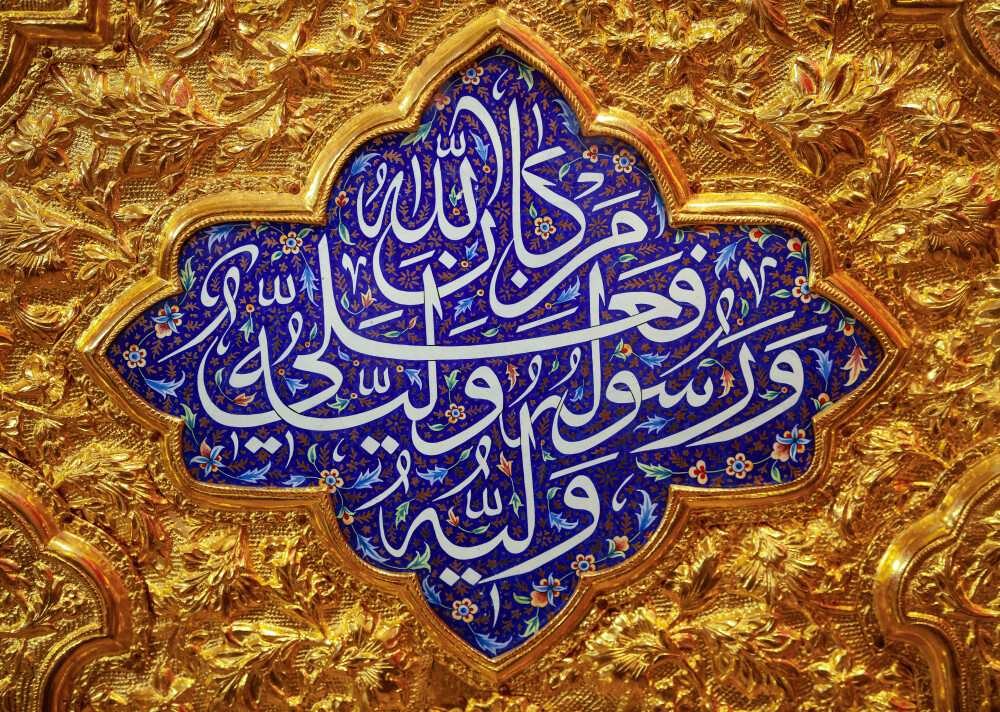 من كان الله
ورسوله وليه
فعلي
وليه